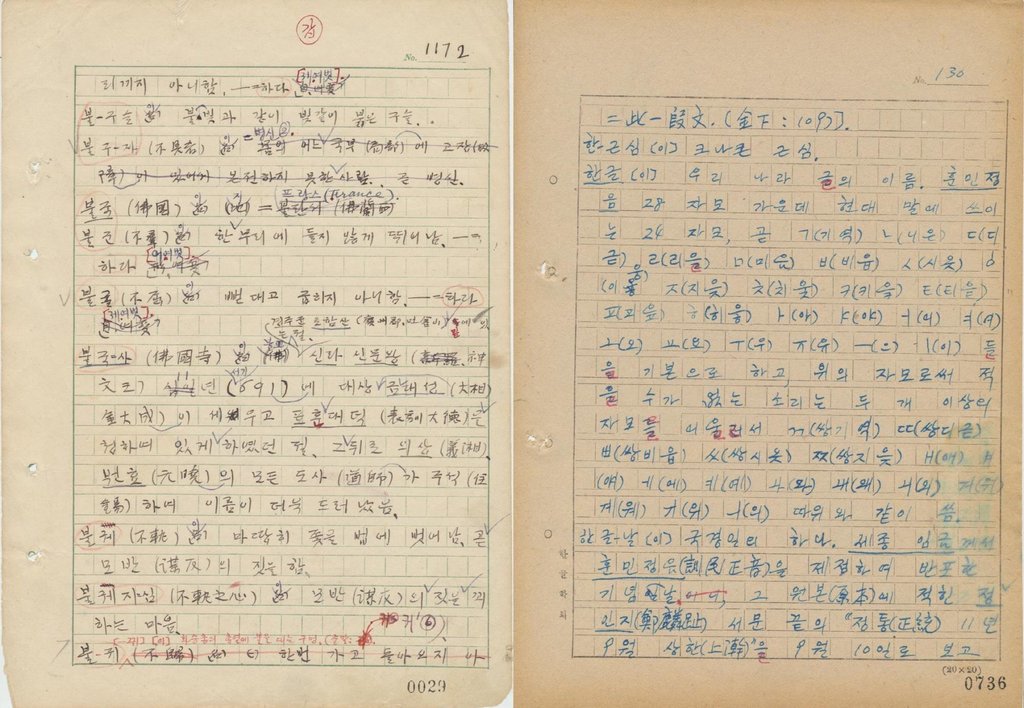 갑
No. 1172
리끼지 아니함. ―하다
불-구슬 불빛과 같이 빛깔이 붉은 구슬.
= 병신
불구-자 (不具者) 몸의 어느 국부 (局部)에 고장(故
障)이 있어서 온전하지 못한 사람. 곧 병신.
프랑스(France)
불국 (佛國) = 불란서 (佛蘭西)
불군 (不羣) 한 무리에 들지 않게 뛰어남. ―
하다
불굴 (不屈) 뻗대고 굽히지 아니함. ―하다
경주군 토함산
는 절.
불국-사 (佛國寺) 신라 신문왕
년 (691)에 대상 김대성 (大相
金大成)이 세우고 표훈 대덕 (表訓大德)을
청하여 있게 하였던 절. 그 뒤로 의상 (義湘)
원효 (元曉)의 모든 도사 (道師)가 주석 (住
錫)하여 이름이 더욱 드러났음.
불궤 (不軌) 마땅히 좇을 법에 벗어남. 곧
모반 (謀反)의 짓을 함.
불궤지심 (不軌之心) 모반 (謀反)의 짓을 꾀
하는 마음.
불귀 (不歸) 한번 가고 돌아오지 아
0029
No. 130
= 此一段文. (金下:109).
한-근심 (이) 크나큰 근심.
한글 (이) 우리 나라 글의 이름. 훈민정
음 28 자모 가운데 현대 말에 쓰이
는 24 자모, 곧 ㄱ(기역) ㄴ(니은) ㄷ(디
귿) ㄹ(리을) ㅁ(미음) ㅂ(비읍) ㅅ(시옷) ㅇ
(이응) ㅈ(지읒) ㅊ(치읓) ㅋ(키읔) ㅌ(티읕)
ㅍ(피읖) ㅎ(히읗) ㅏ(아) ㅑ(야) ㅓ(어) ㅕ(여)
ㅗ(오) ㅛ(요) ㅜ(우) ㅠ(유) ㅡ(으) ㅣ(이) 들
을 기본으로 하고, 위의 자모로써 적
을 수가 없는 소리는 두 개 이상의
자모를 어울러서 ㄲ(쌍기역) ㄸ(쌍디귿)
ㅃ(쌍비읍) ㅆ(쌍시옷) ㅉ(쌍지읒) ㅐ(애) ㅒ
(얘) ㅔ(에) ㅖ(예) ㅘ(와) ㅙ(왜) ㅚ(외) ㅝ(워)
ㅞ(웨) ㅟ(위) ㅢ(의) 따위와 같이 씀.
한글-날 (이) 국경일의 하나. 세종 임금께서
훈민정음(訓民正音)을 제정하여 반포한
기념날. 그 원본(原本)에 적한 정
인지(鄭麟趾) 서문 끝의 "정통(正統) 11년
9월 상한(上澣)"을 9월 10일로 보고
한글학회
(20×20)
0736